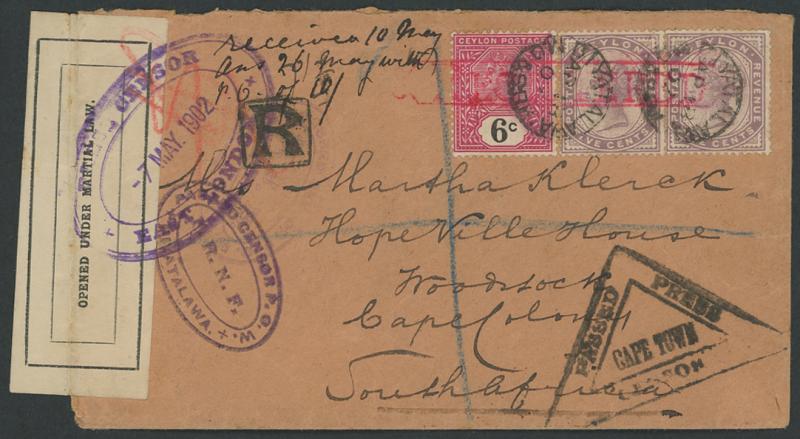 received 10 May
Ans 26 May with
P.O. of 10/
R
CEYLON POSTAGE
6c
CEYLON
POSTAGE
REVENUE
FIVE CENTS
CEYLON
POSTAGE
REVENUE
FIVE CENTS
DIYATALAWA
OPENED UNDER MARTIAL LAW.
CENSOR
-7 MAY. 1902
EAST LONDON
CENSOR P.O.W.
R. N. F.
DIYATALAWA.
Mrs Martha Klerck
HopeVille House
Woodstock
Cape Colony
South Africa
PASSED
PRESS
CAPE TOWN
CENSOR